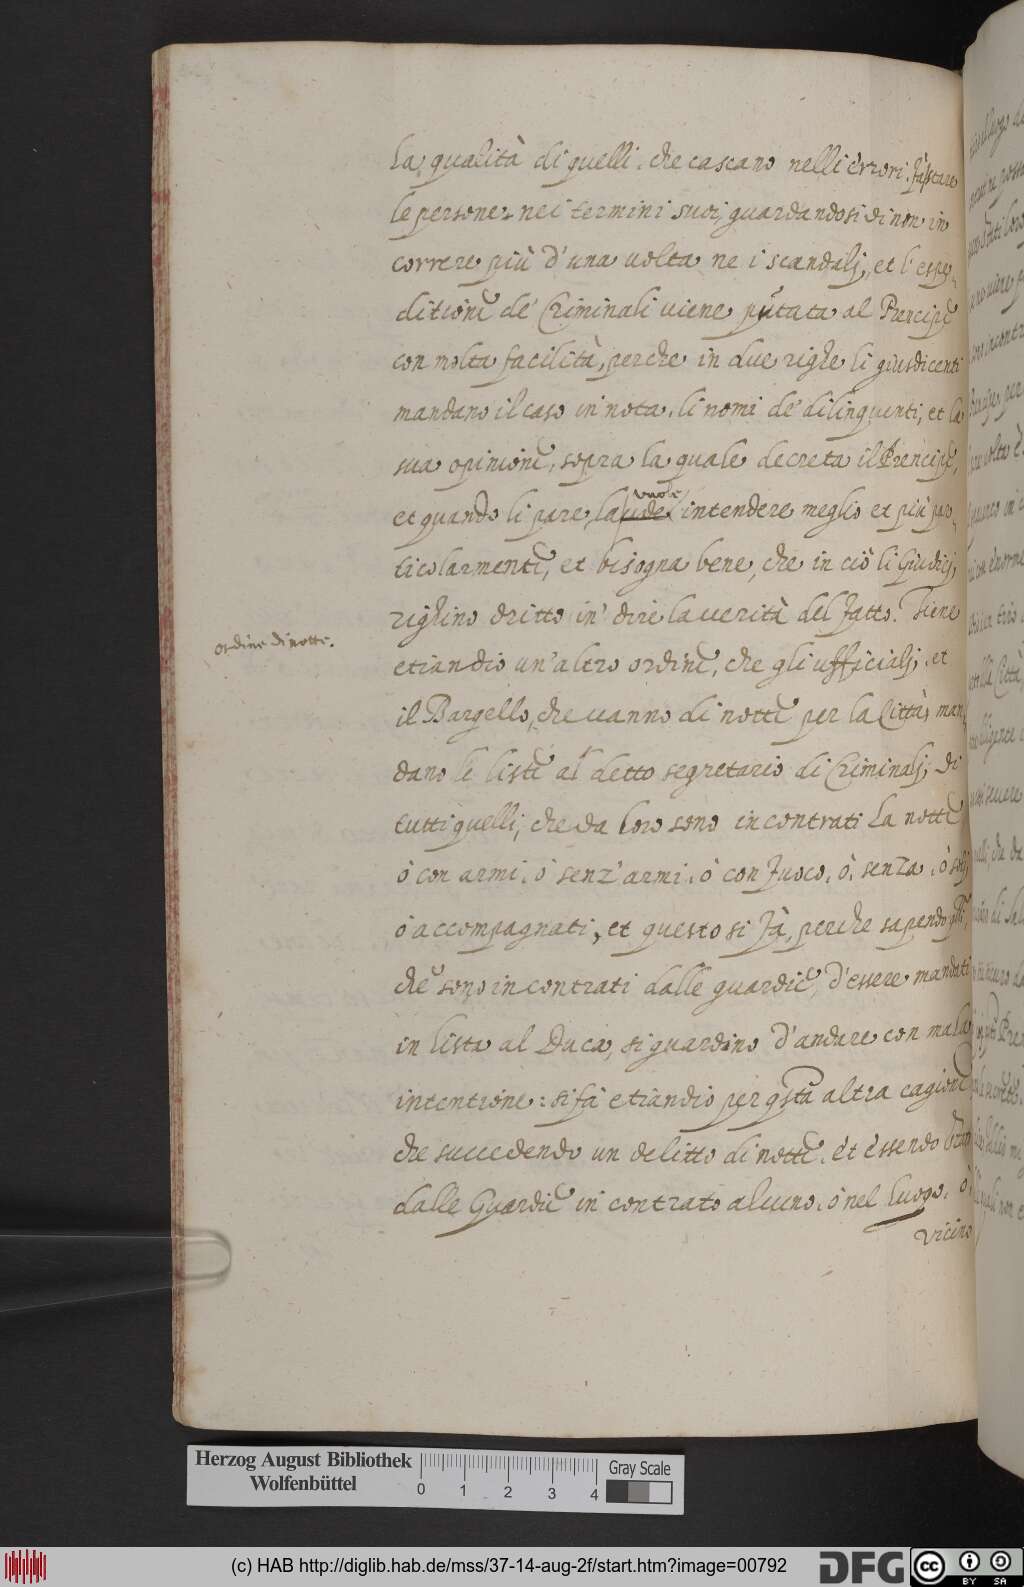 la qualità di quelli, che cascano nelli errori, fà stare
le persone nei termini suoi, guardandosi di non in
correre più d'una volta ne i scandali, et l'espe„
ditione de' Criminali viene portata al Prencipe
con molta facilità, perche in due righe li giusdicenti
mandano il caso in nota, li nomi de' dilinquenti, et la
sua opinione, sopra la quale decreta il Prencipe,
et quando li pare, la vuole intendere meglio et più par„
ticolarmente, et bisogna bene, che in ciò li Giudici
righino dritto in' dire la verità del fatto. Tiene
ordine di notte.
etiandio un'altro ordine, che gli ufficiali, et
il Bargello, che vanno di notte per la Città, man„
dano le liste al detto segretario di Criminali, di
tutti quelli, che da loro sono incontrati la notte
ò con armi, ò senz'armi, ò con fuoco, ò, senza, ò soli,
ò accompagnati, et questo si fà, perche sapendo qlli,
che sono incontrati dalle guardie, d'essere mandati
in lista al Duca, si guardino d'andare con mala
intentione: si fà etiandio per qsta altra cagione
che succedendo un delitto di notte, et essendo stato
dalle Guardie in contrato alcuno, ò nel luogo, ò
vicino
Herzog August Bibliothek
Wolfenbüttel
0 1 2 3 4
Gray Scale
(c) HAB http://diglib.hab.de/mss/37-14-aug-2f/start.htm?image=00792
DFG
cc BY SA